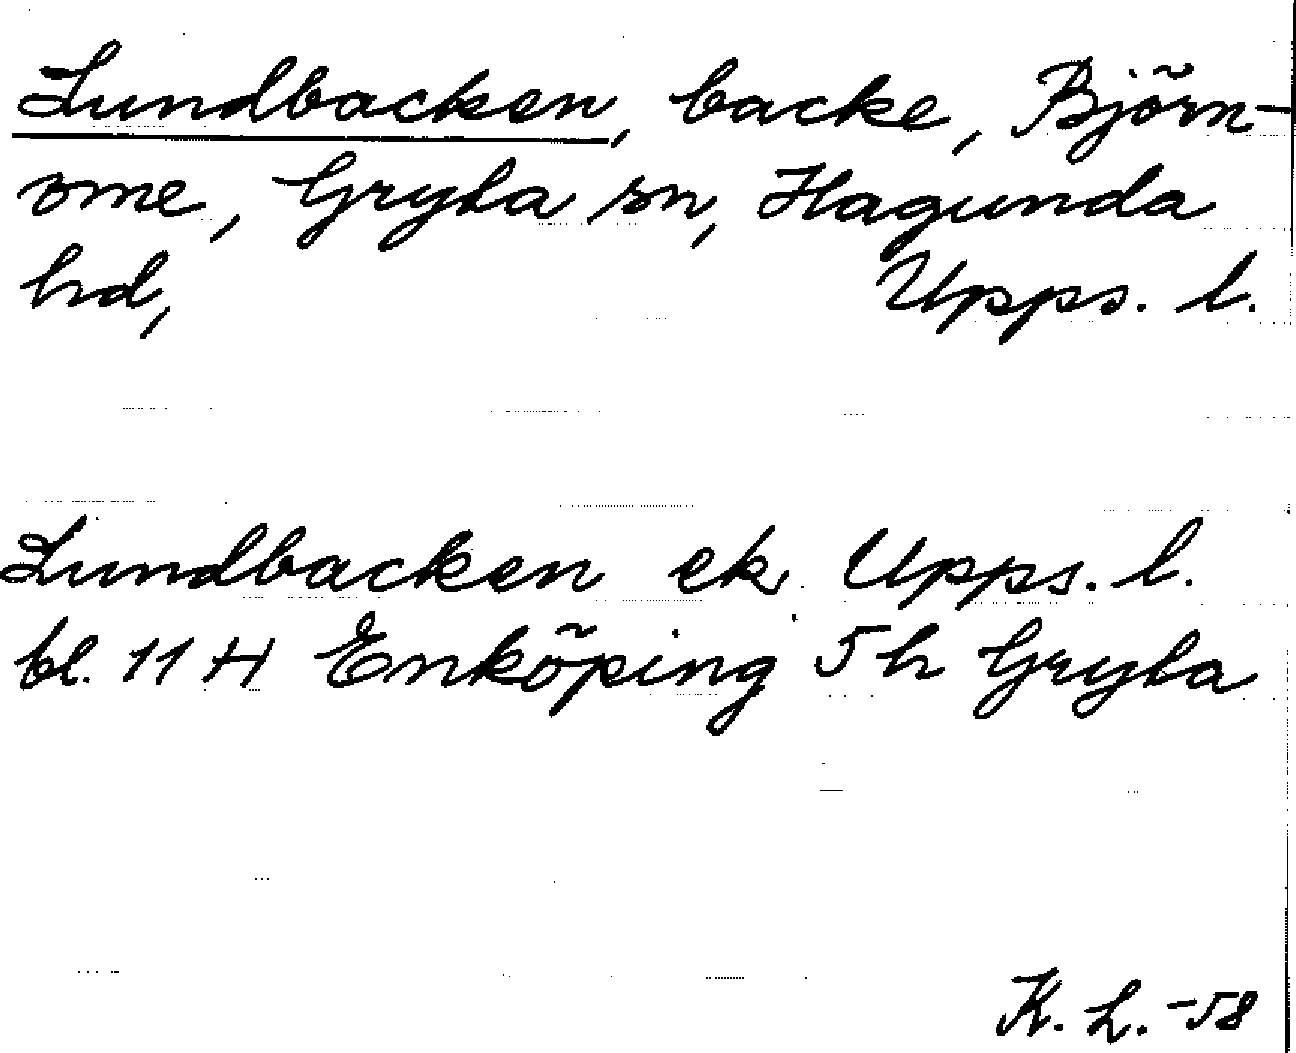 Lundbacken, backe, Björn-
ome, Gryta sn, Hagunda
hd, Upps. l.
Lundbacken ek Upps. l.
bl. 11 H Enköping 5h Gryta
K. L. -58